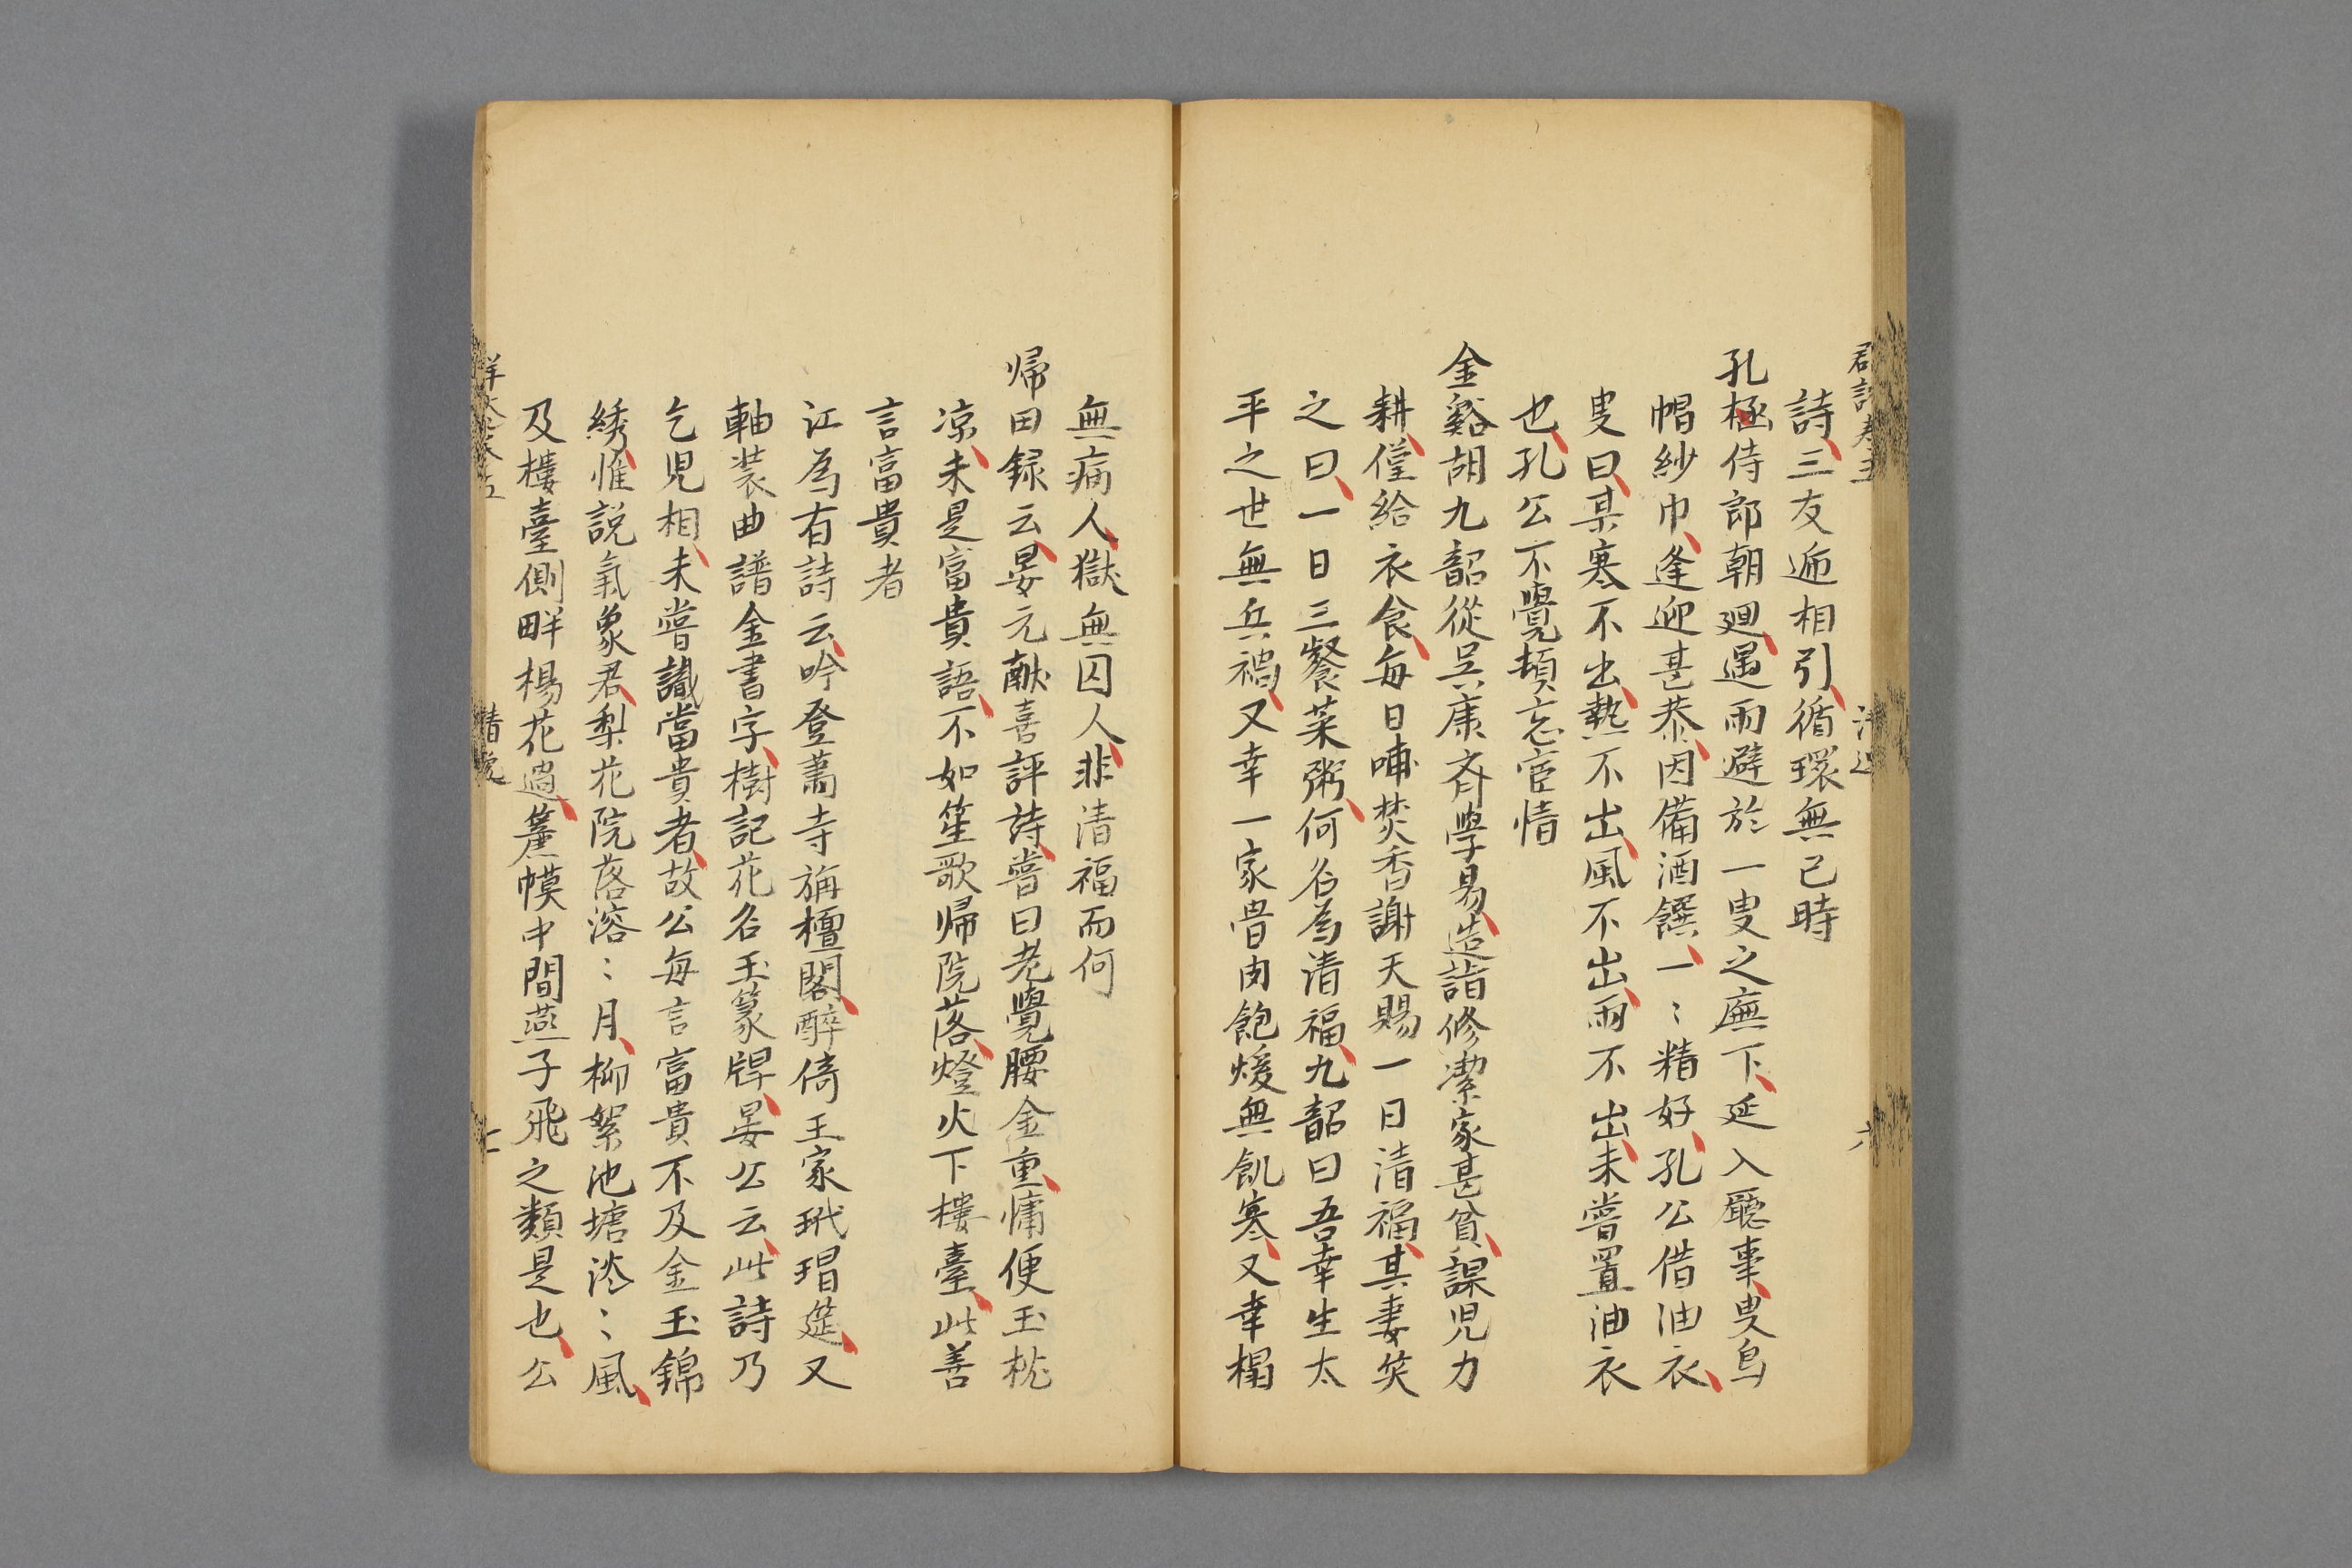 詩三友遞相引循環無已時
孔極侍郎朝廻遇雨避於一叟之廡下延入廳事叟烏
帽紗巾逢迎甚恭因備酒饌一〻精好孔公借油衣
叟曰某寒不出熱不出風不出雨不出未嘗置油衣
也孔公不覺頓忘宦情
金谿胡九韶從吳康斉學易造詣修潔家甚貧課児力
耕僅給衣食每日晡焚香謝天賜一日清福其妻笑
之曰一日三餐菜粥何名為清福九韶曰吾幸生太
平之世無兵禍又幸一家骨肉飽煖無飢寒又幸榻
無病人獄無囚人非清福而何
帰田録云晏元献喜評詩嘗曰老覺腰金重慵便玉枕
凉未是富貴語不如笙歌帰院落燈火下樓臺此善
言富貴者
江為有詩云吟登蕭寺旃檀閣醉倚王家玳瑁筵又
軸装曲譜金書字樹記花名玉篆牌晏公云此詩乃
乞児相未嘗識當貴者故公每言富貴不及金玉錦
綉惟說氣象君梨花院落溶〻月柳絮池塘淡〻風
及樓臺側畔楊花過簾幙中間燕子飛之類是也公